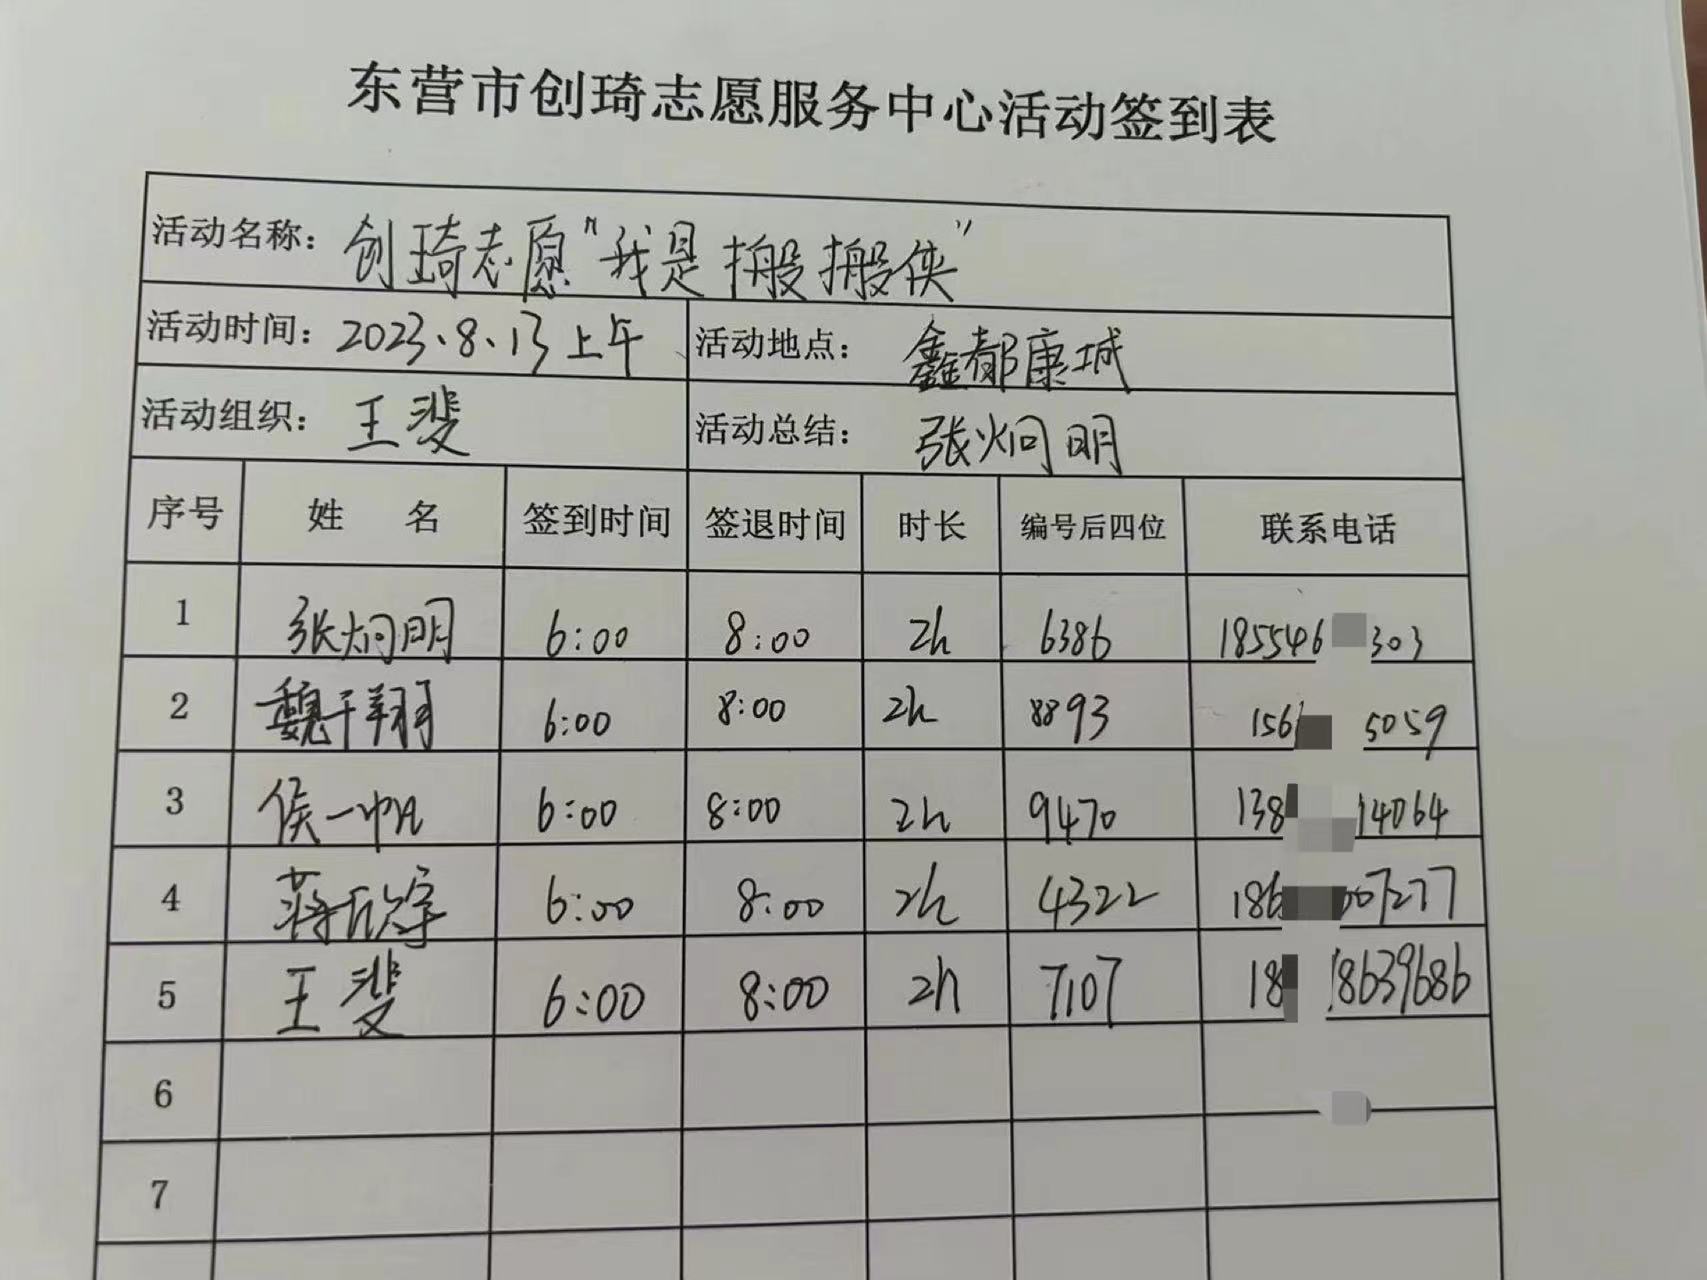 东营市创琦志愿服务中心活动签到表
活动名称：创琦志愿"我是搬搬侠"
活动时间：2023、8、13上午 活动地点：鑫都康城
活动组织：王斐 活动总结：张炯明
序号 姓 名 签到时间 签退时间 时长 编号后四位 联系电话
1 张炯明 6:00 8:00 2h 6386 185546 303
2 魏千翔 6:00 8:00 2h 8893 156 5059
3 侯一帆 6:00 8:00 2h 9470 138 14064
4 蒋欣宇 6:00 8:00 2h 4322 186 007277
5 王斐 6:00 8:00 2h 7107 18 18639686
6
7